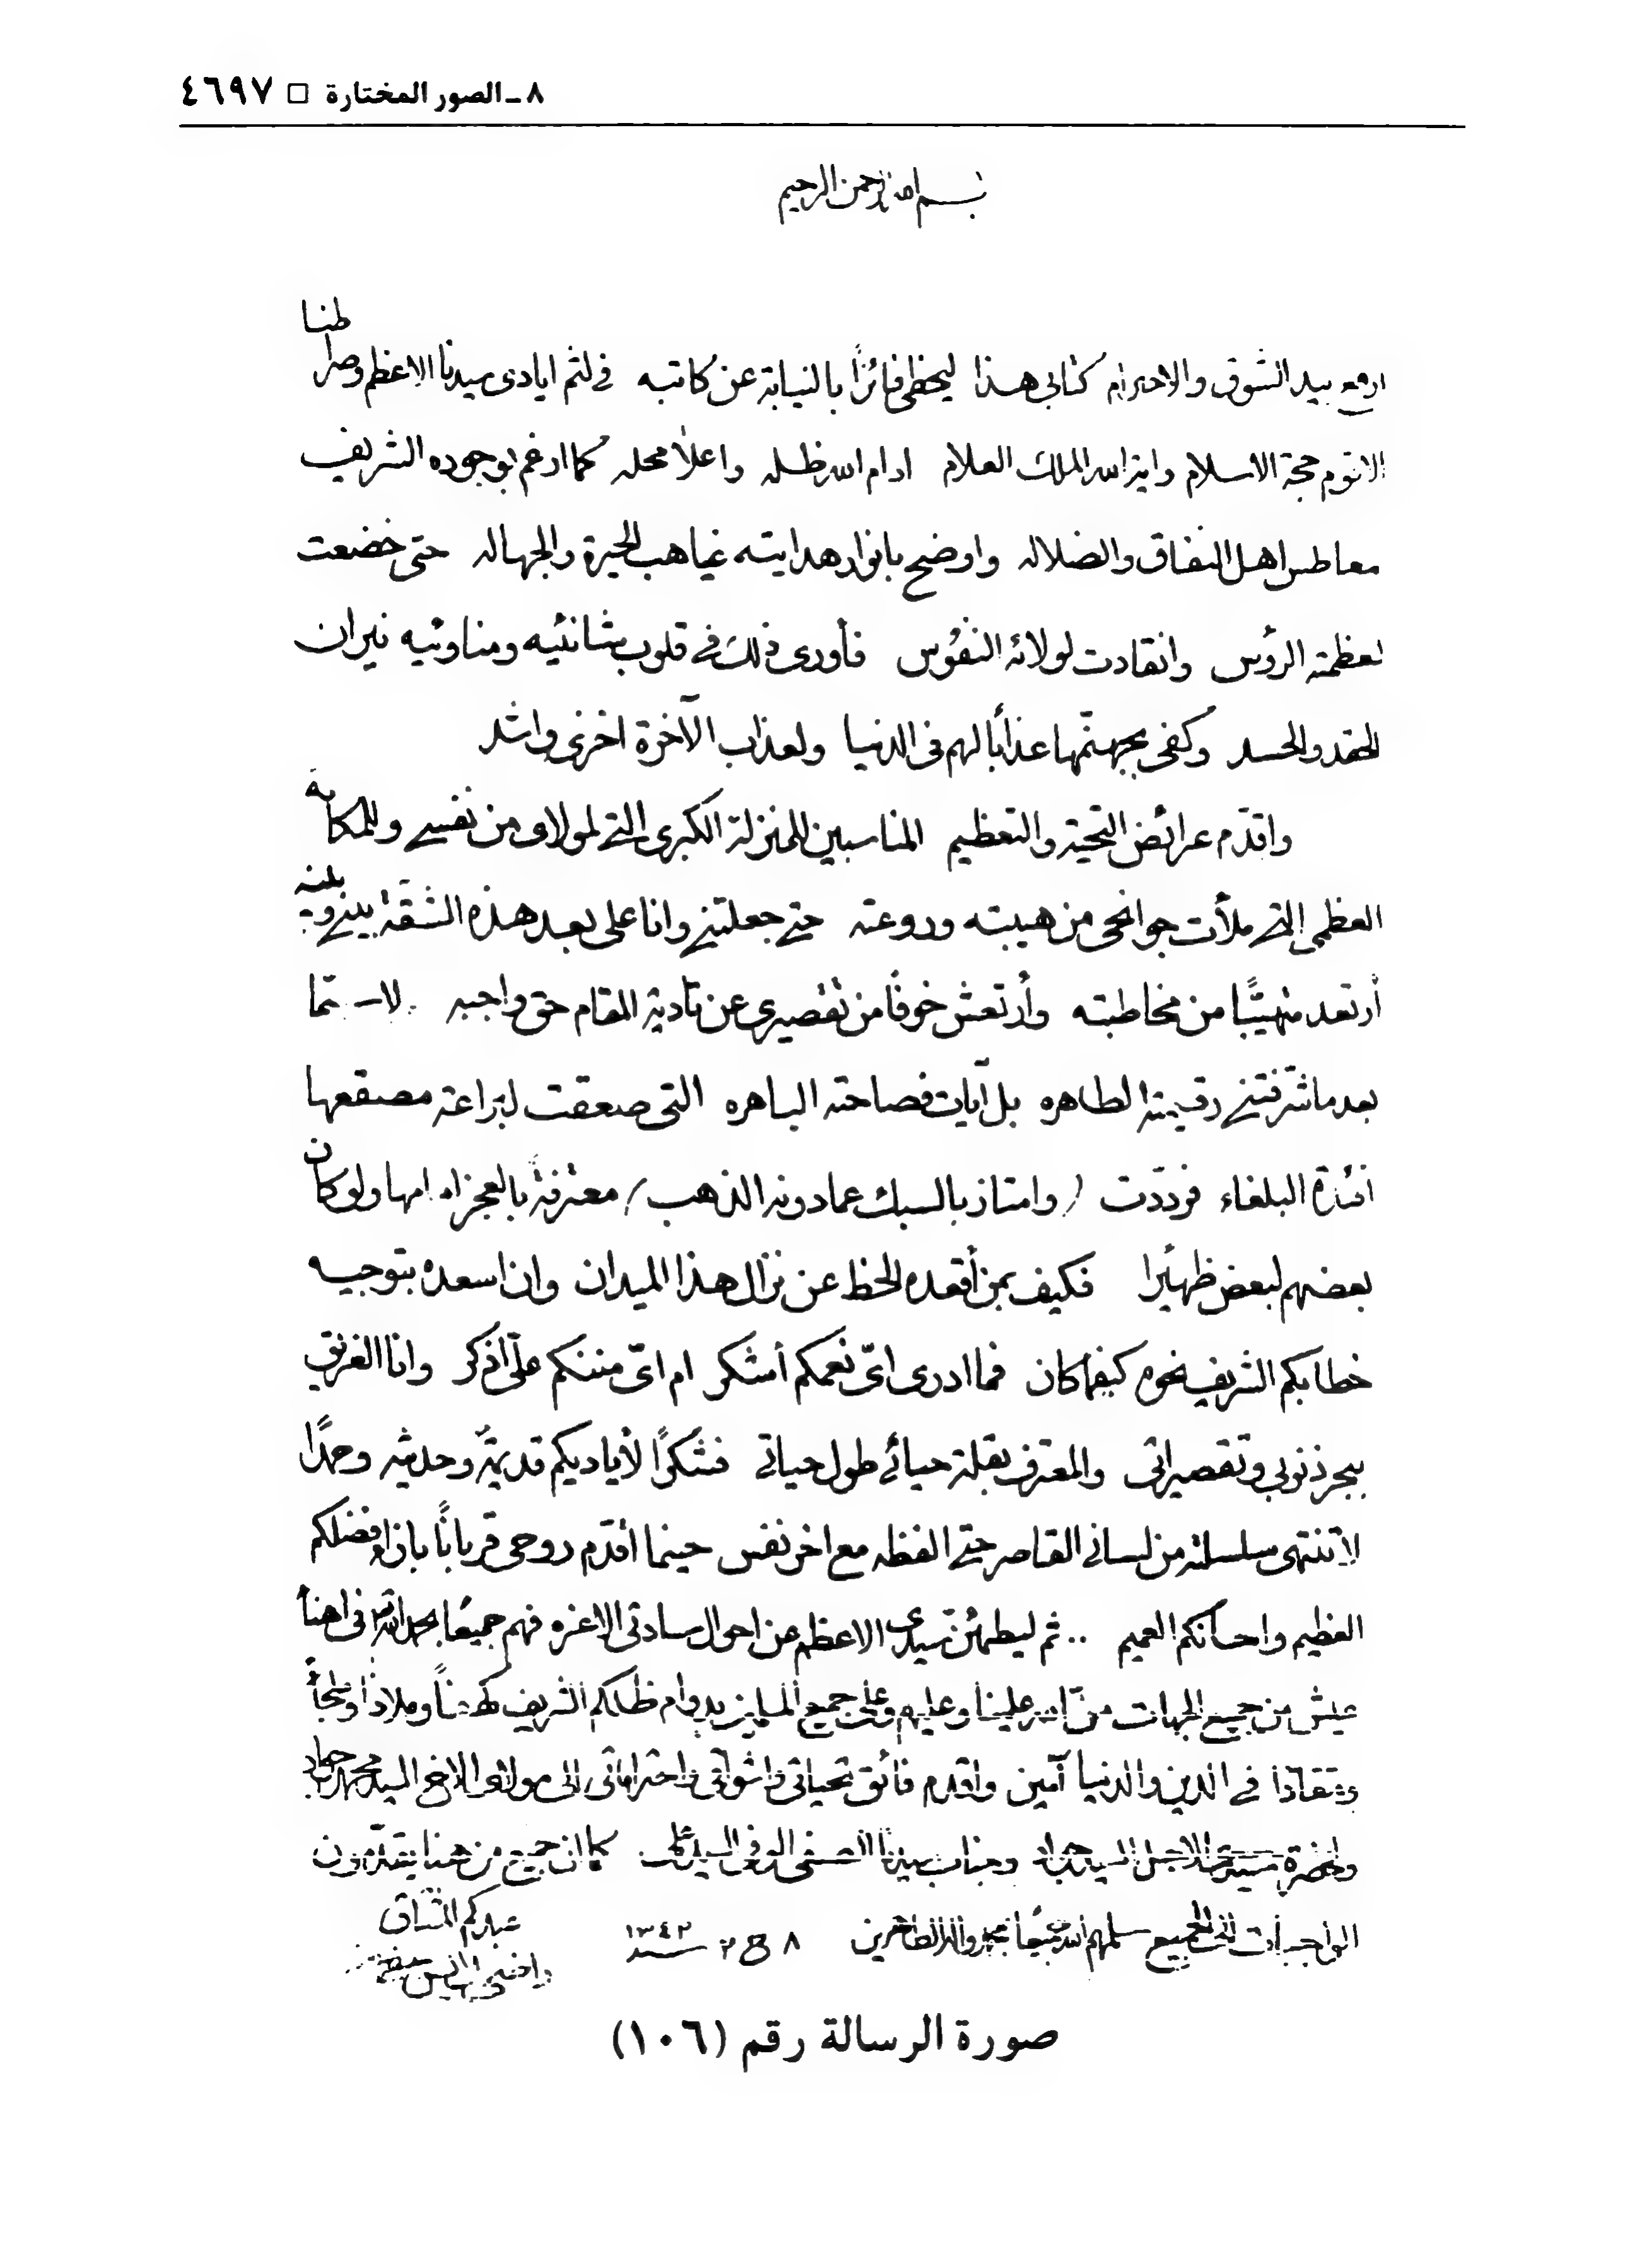 ٨ ـ الصور المختارة □ ٤٦٩٧
بسم الله الرحمن الرحيم
ارفع بيد الشوق والاحترام كتابي هذا ليحظى فائزًا بالنيابة عن كاتبه في لثم ايادي سيدنا الاعظم وصراطنا
الاقوم حجة الاسلام واية الله الملك العلام ادام الله ظله واعلا محله كما ارغم بوجوده الشريف
معاطس اهل النفاق والضلاله واوضح بانوار هدايته غياهب الحيرة والجهاله حتى خضعت
لعظمته الرؤس وانقادت لولائه النفوس فأورى ذلك في قلوب شانئيه ومناوئيه نيران
الحقد والحسد وكفى بجهنّمها عذابًا لهم في الدنيا ولعذاب الآخرة اخزى واشد
واقدّم عرائض التحية والتعظيم المناسبين للمنزلة الكبرى التي لمولاي من نفسي وللمكانة
العظمى التي ملأت جوانحي من هيبته وروعته حتى جعلتني وانا على بعد هذه الشقة بيني وبينه
أرتعد متهيّبًا من مخاطبته وأرتعش خوفًا من تقصيري عن تادية المقام حق واجبه لا سيّما
بعد ما شرّفتني رقيمته الطاهره بل آيات فصاحته الباهره التي صعقت لبراعة مصقعها
افئدة البلغاء فردّدت (وامتاز بالسبك عما دونه الذهب) معترفةً بالعجز امامها ولو كان
بعضهم لبعض ظهيرًا فكيف بمن أقعده الحظ عن نزال هذا الميدان وان اسعده بتوجيه
خطابكم الشريف نحوه كيفما كان فما ادري ايّ نعمكم أشكر ام ايّ مننكم عليّ اذكر وانا الغريق
ببحر ذنوبي وتقصيراتي والمعترف بقلة حيائي طول حياتي فشكرًا لأياديكم قديمة وحديثه وحمدًا
لا تنتهي سلسلته من لساني القاصر حتى الفظه مع اخر نفس حينما أقدم روحي قربانًا بازاء فضلكم
العظيم واحسانكم العميم .. ثم ليطمئن سيدي الاعظم عن احوال سادتي الاعزه فهم جميعًا بحمد الله في اهنأ
عيش من جميع الجهات منّ الله علينا وعليهم وعلى جميع بدوام ظلكم الشريف كهفًا وملاذًا وملجأً
في الدين والدنيا آمين واقدم فائق تحياتي واشواقي واحتراماتي الى مولاي الاخ السيد محمد جواد
ولحضرة الاجل السيد وجناب سيدنا السيد كما ان جميع من هنا يقدّمون
الواجبات الى الجميع سلمهم الله جميعًا بمحمد واله الطاهرين ٨ ج ٢ سنه ١٣٤٢
عبدكم المشتاق
صورة الرسالة رقم (١٠٦)